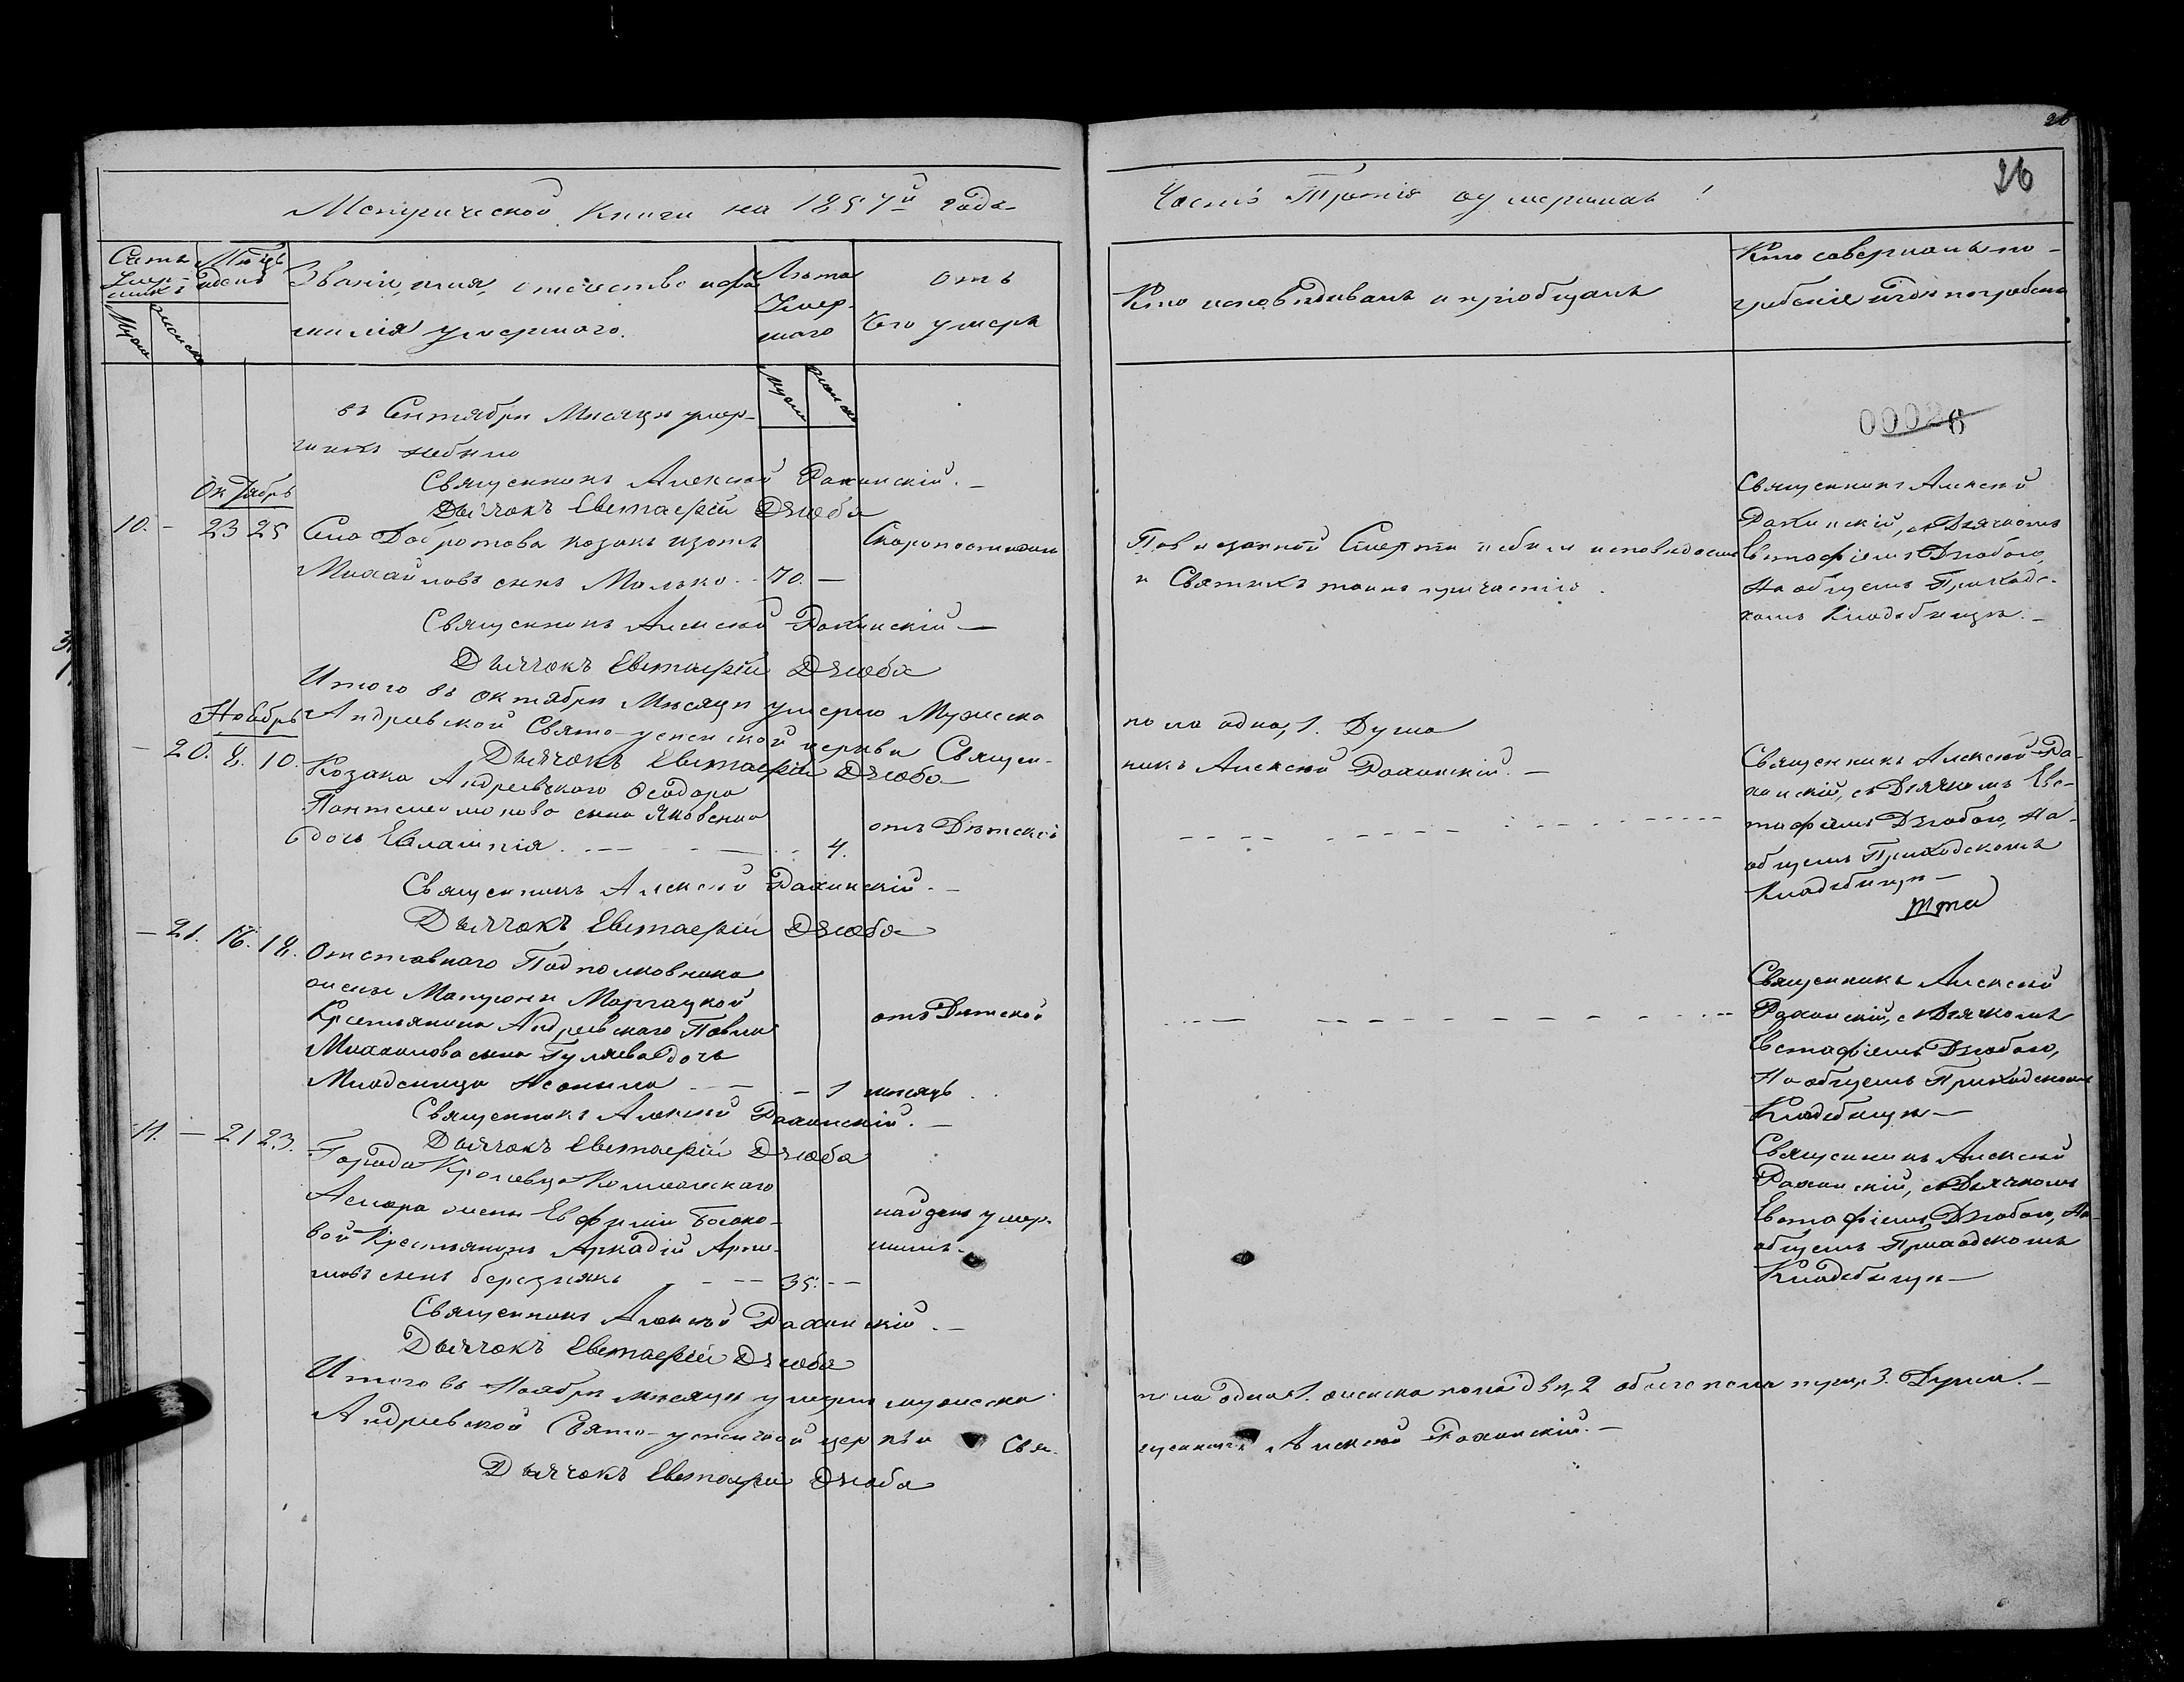 26
26
Метрической Книги на 1857й года
Часть Третія оу мершихъ
Счетъ
Умер-
шихъ
Мужеска
женска
Мѣсяцъ
и день
Званіе, имя, отечество и фа
милія умершаго.
Лѣта
Умер-
шаго
Мужеска
женска
отъ
Чего умеръ
Кто исповѣдывалъ и пріобщалъ
Кто совершалъ по-
гребеніе и гдѣ погребены
00026
въ Сентябрѣ Мѣсяцѣ умер-
шихъ небыло
Священникъ Алексѣй Рахинскій. —
Дьячокъ Евстафій Дзюба
Октябрь
10. — 23 25 Села Добротова козакъ Изотъ
Михайловъ сынъ Малько. — 70. —
Скоропостижно
По внезапной Смерти небыл исповѣдоанъ
и Святыхъ таинъ причастію.
Священникъ Алексѣй
Рахинскій, съ Дьячкомъ
Евстафіемъ Дзюбою,
На общемъ Приходс-
комъ Кладбищѣ. —
Священникъ Алексѣй Рахинскій —
Дьячокъ Евстафій Дзюба
Итого въ октябрѣ Мѣсяцѣ умерло Мужеска
пола одна, 1. Душа
Андреевской Свято-успенской церкви Священ-
никъ Алексѣй Рахинскій. —
Дьячокъ Евстафій Дзюба
Ноябрь
— 20. 8. 10. Козака Андреевскаго Ѳеодора
Пантелеимонова сына Яковенка
дочь Евлампія — 4.
отъ Дѣтской
Священникъ Алексѣй Ра-
хинскій, съ Дьячкомъ Евс-
тафіемъ Дзюбою, На
общемъ Приходскомъ
Кладбищѣ —
Священникъ Алексѣй Рахинскій. —
Дьячокъ Евстафій Дзюба
— 21. 16. 18. Отставнаго Подполковника
жены
Крестьянина Андреевскаго Павла
Михаилова сына Гуляева дочь
Младеница — 1 мѣсяцъ
отъ Дѣтской
Священникъ Алексѣй
Рахинскій, съ Дьячкомъ
Евстафіемъ Дзюбою,
На общемъ Приходскомъ
Кладбищѣ —
Священникъ Алексѣй Рахинскій. —
Дьячокъ Евстафій Дзюба
11. — 21 23. Города Кролевца Коллежскаго
жены Евфиміи
Крестьянинъ Аркадій
сынъ Березнякъ — 35. —
найденъ умер-
шимъ.
Священникъ Алексѣй
Рахинскій, съ Дьячкомъ
Евстафіемъ Дзюбою, На
общемъ Приходскомъ
Кладбищѣ —
Священникъ Алексѣй Рахинскій. —
Дьячокъ Евстафій Дзюба
Итого въ Ноябрѣ мѣсяцѣ умерло мужеска
пола одна 1. женска пола двѣ, 2 обоего пола три, 3. Души. —
Андреевской Свято-успенской церкви Свя-
щенникъ Алексѣй Рахинскій. —
Дьячокъ Евстафій Дзюба